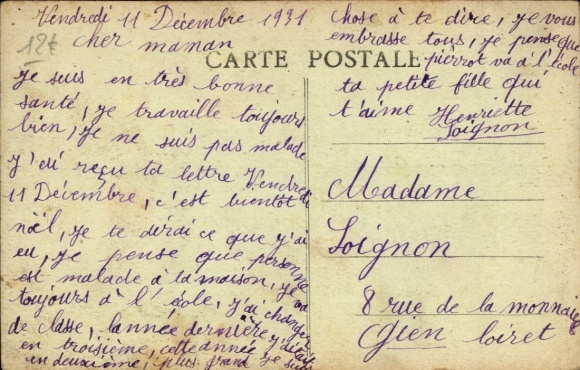 Vendredi 11 Décembre 1931
12€
cher maman
CARTE POSTALE
je suis en très bonne
santé, je travaille toujours
bien, je ne suis pas malade
j'ai reçu ta lettre Vendredi
11 Décembre, c'est bientôt
nöêl, je te dirai ce que j'ai
eu, je pense que personne
est malade à la maison, je va
toujours à l'école, j'ai changer
de classe, lannée dernière j'étais
en troisième, cette année je suis
en deuxième, plus grand
chose à te dire, je vous
embrasse tous, je pense que
pierrot va à l'école
ta petite fille qui
t'aime Henriette
Loignon
Madame
Loignon
8 rue de la monnaie
Gien loiret